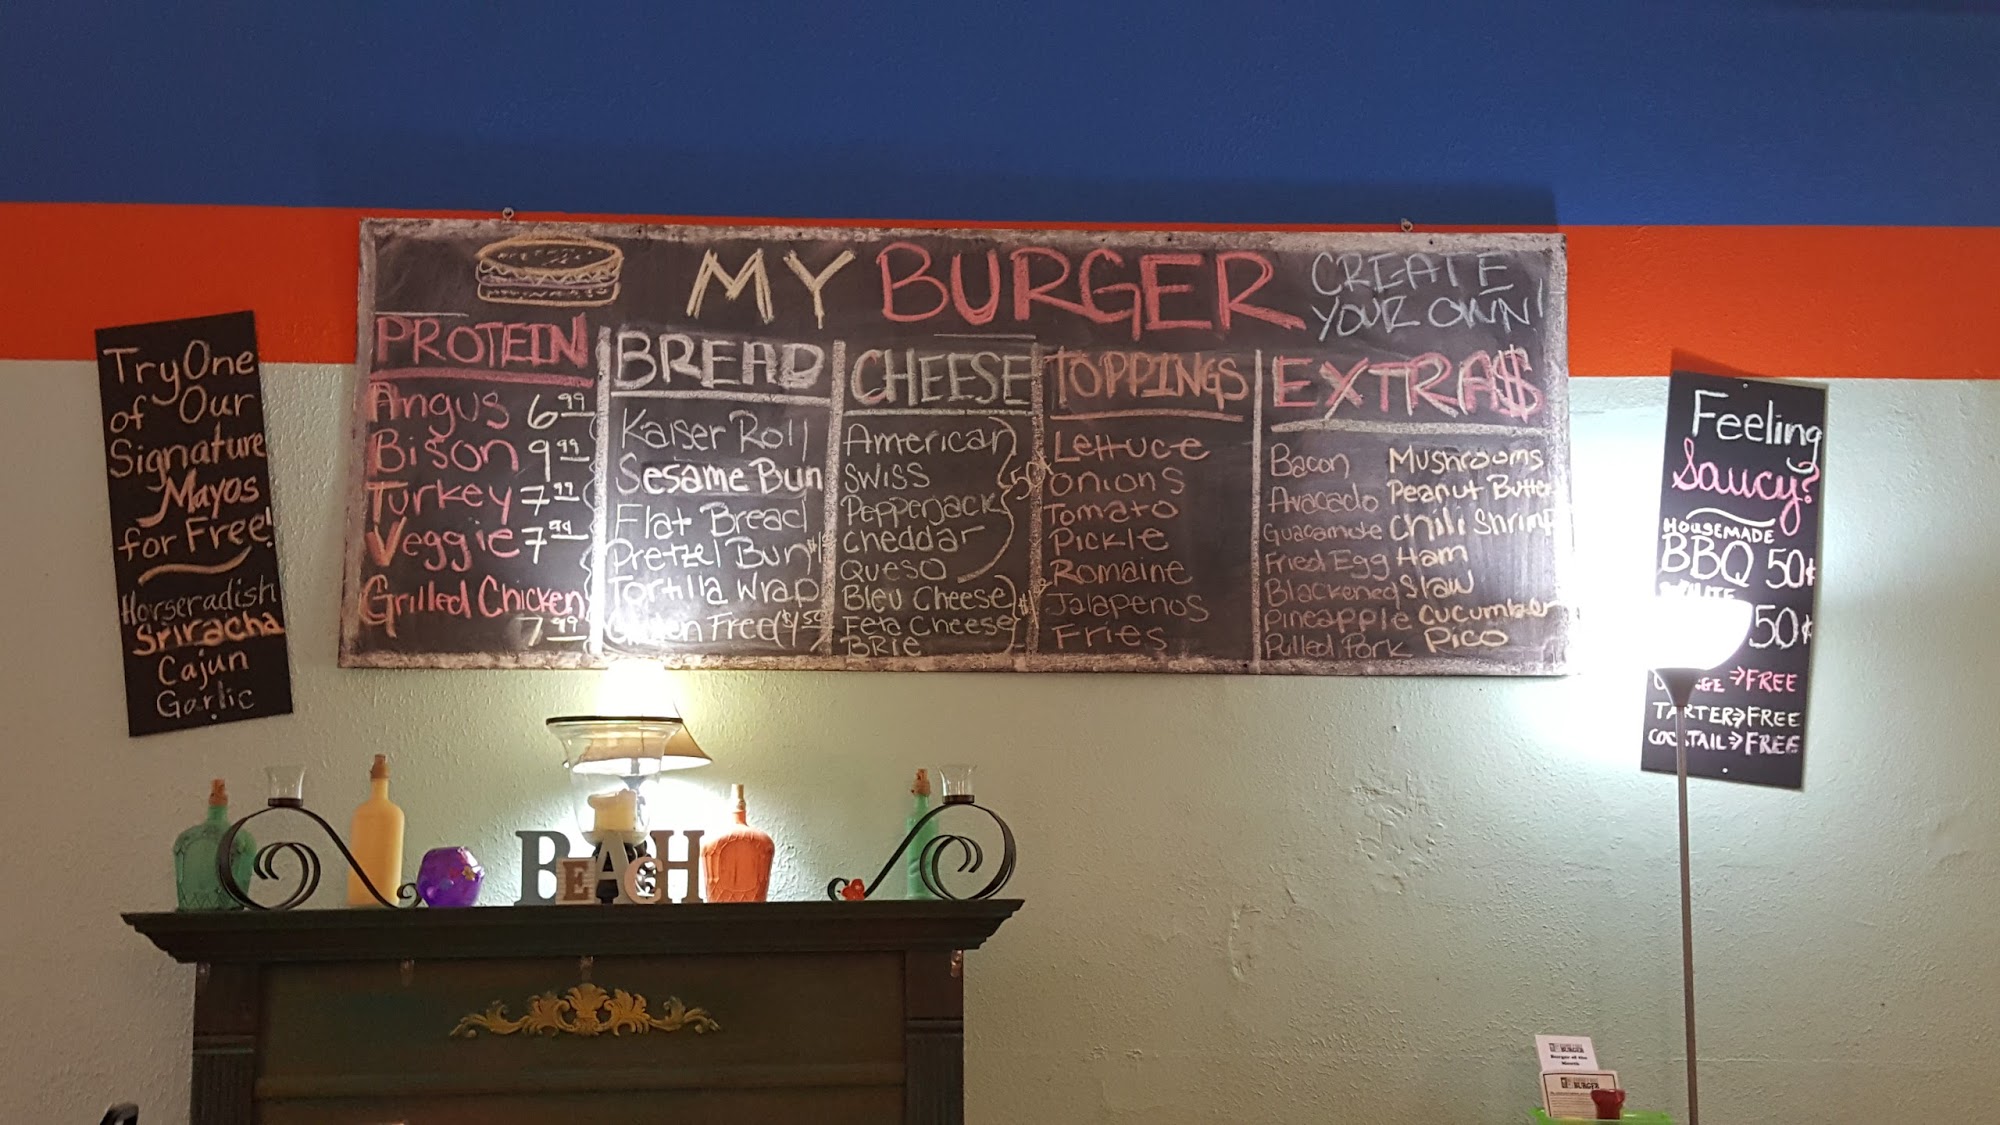 Try One
of Our
Signature
Mayos
for Free!
Horseradish
Sriracha
Cajun
Garlic
MY BURGER
CREATE
YOUR OWN!
PROTEIN
Angus 6.99
Bison 9.99
Turkey 7.99
Veggie 7.99
Grilled Chicken
7.99
BREAD
Kaiser Roll
Sesame Bun
Flat Bread
Pretzel Bun
Tortilla Wrap
Free
CHEESE
American
Swiss
Pepperjack
Cheddar
Queso
Bleu Cheese
Feta Cheese
Brie
50¢
TOPPINGS
Lettuce
Onions
Tomato
Pickle
Romaine
Jalapenos
Fries
EXTRA$
Bacon
Avacado
Guacamole
Fried Egg
Blackened
Pineapple
Pulled Pork
Mushrooms
Peanut Butter
Chili Shrimp
Ham
Slaw
Cucumber
Pico
Feeling
Saucy?
HOUSEMADE
BBQ 50¢
WHITE
50¢
→FREE
TARTER→FREE
COCKTAIL→FREE
BEACH
BURGER
Burger of the
Month
BURGER